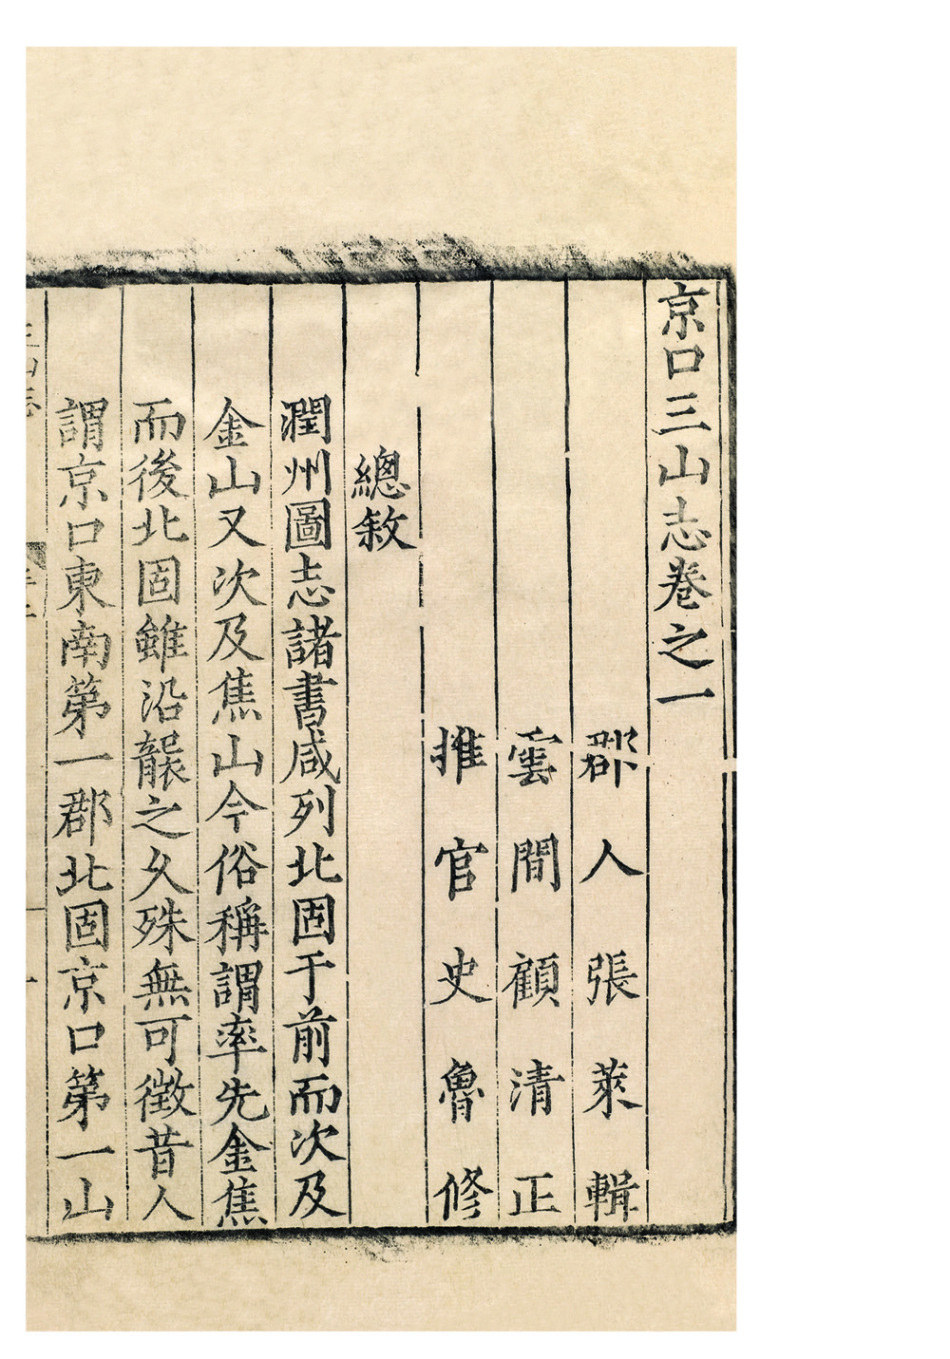 京口三山志卷之一
郡人張萊輯
雲間顧清正
推官史魯修
總敘
潤州圖志諸書咸列北固于前而次及
金山又次及焦山今俗稱謂率先金焦
而後北固雖沿襲之久殊無可徵昔人
謂京口東南第一郡北固京口第一山
三山志